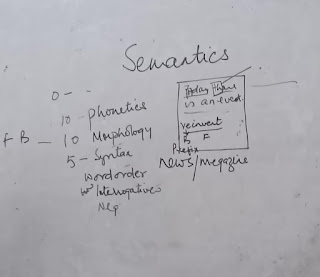 Semantics
0 - -
10 - Phonetics
F B - 10 Morphology
5 - Syntax
wordorder
wh/interrogatives
Neg
today there
is an event.
reinvent
B F
Prefix
news/megazine